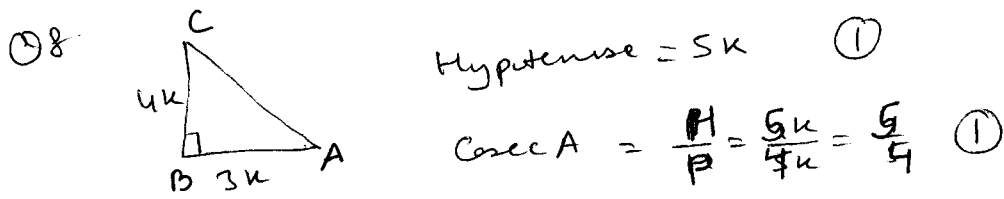 Q8
C
4k
B 3k A
Hypotenuse = 5k ①
Cosec A = H/P = 5k/4k = 5/4 ①